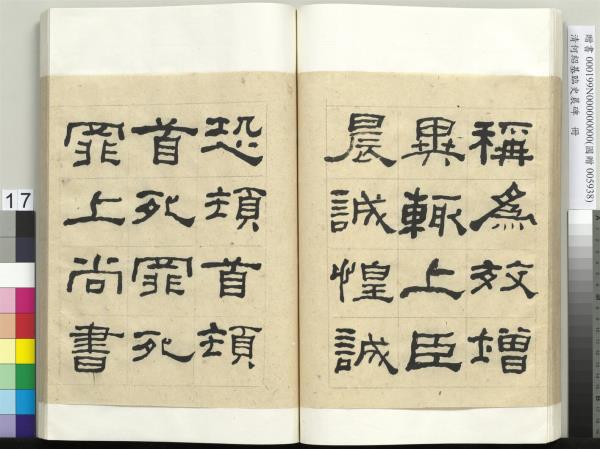 贈書 000199N000000000(國贈 005938)
清何紹基臨史晨碑 冊
稱為效增
異輒上臣
晨誠惶誠
恐頓首頓
首死罪死
罪上尚書
17